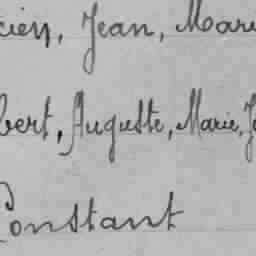 cien, Jean, Mari
bert, Auguste, Marie, J
Constant